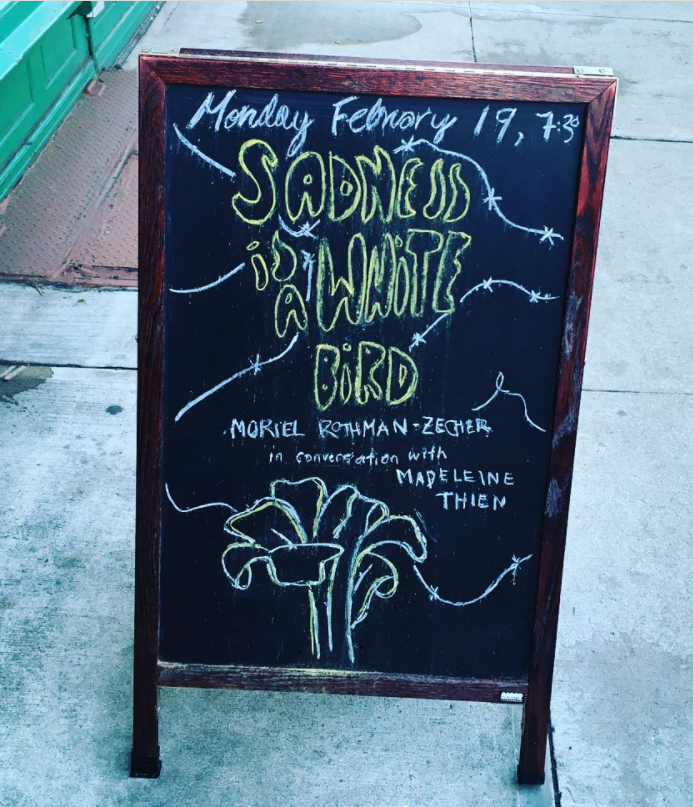 Monday February 19, 7:30
SADNESS
iS A WHiTE
BiRD
MORIEL ROTHMAN-ZECHER
in conversation with
MADELEINE
THIEN